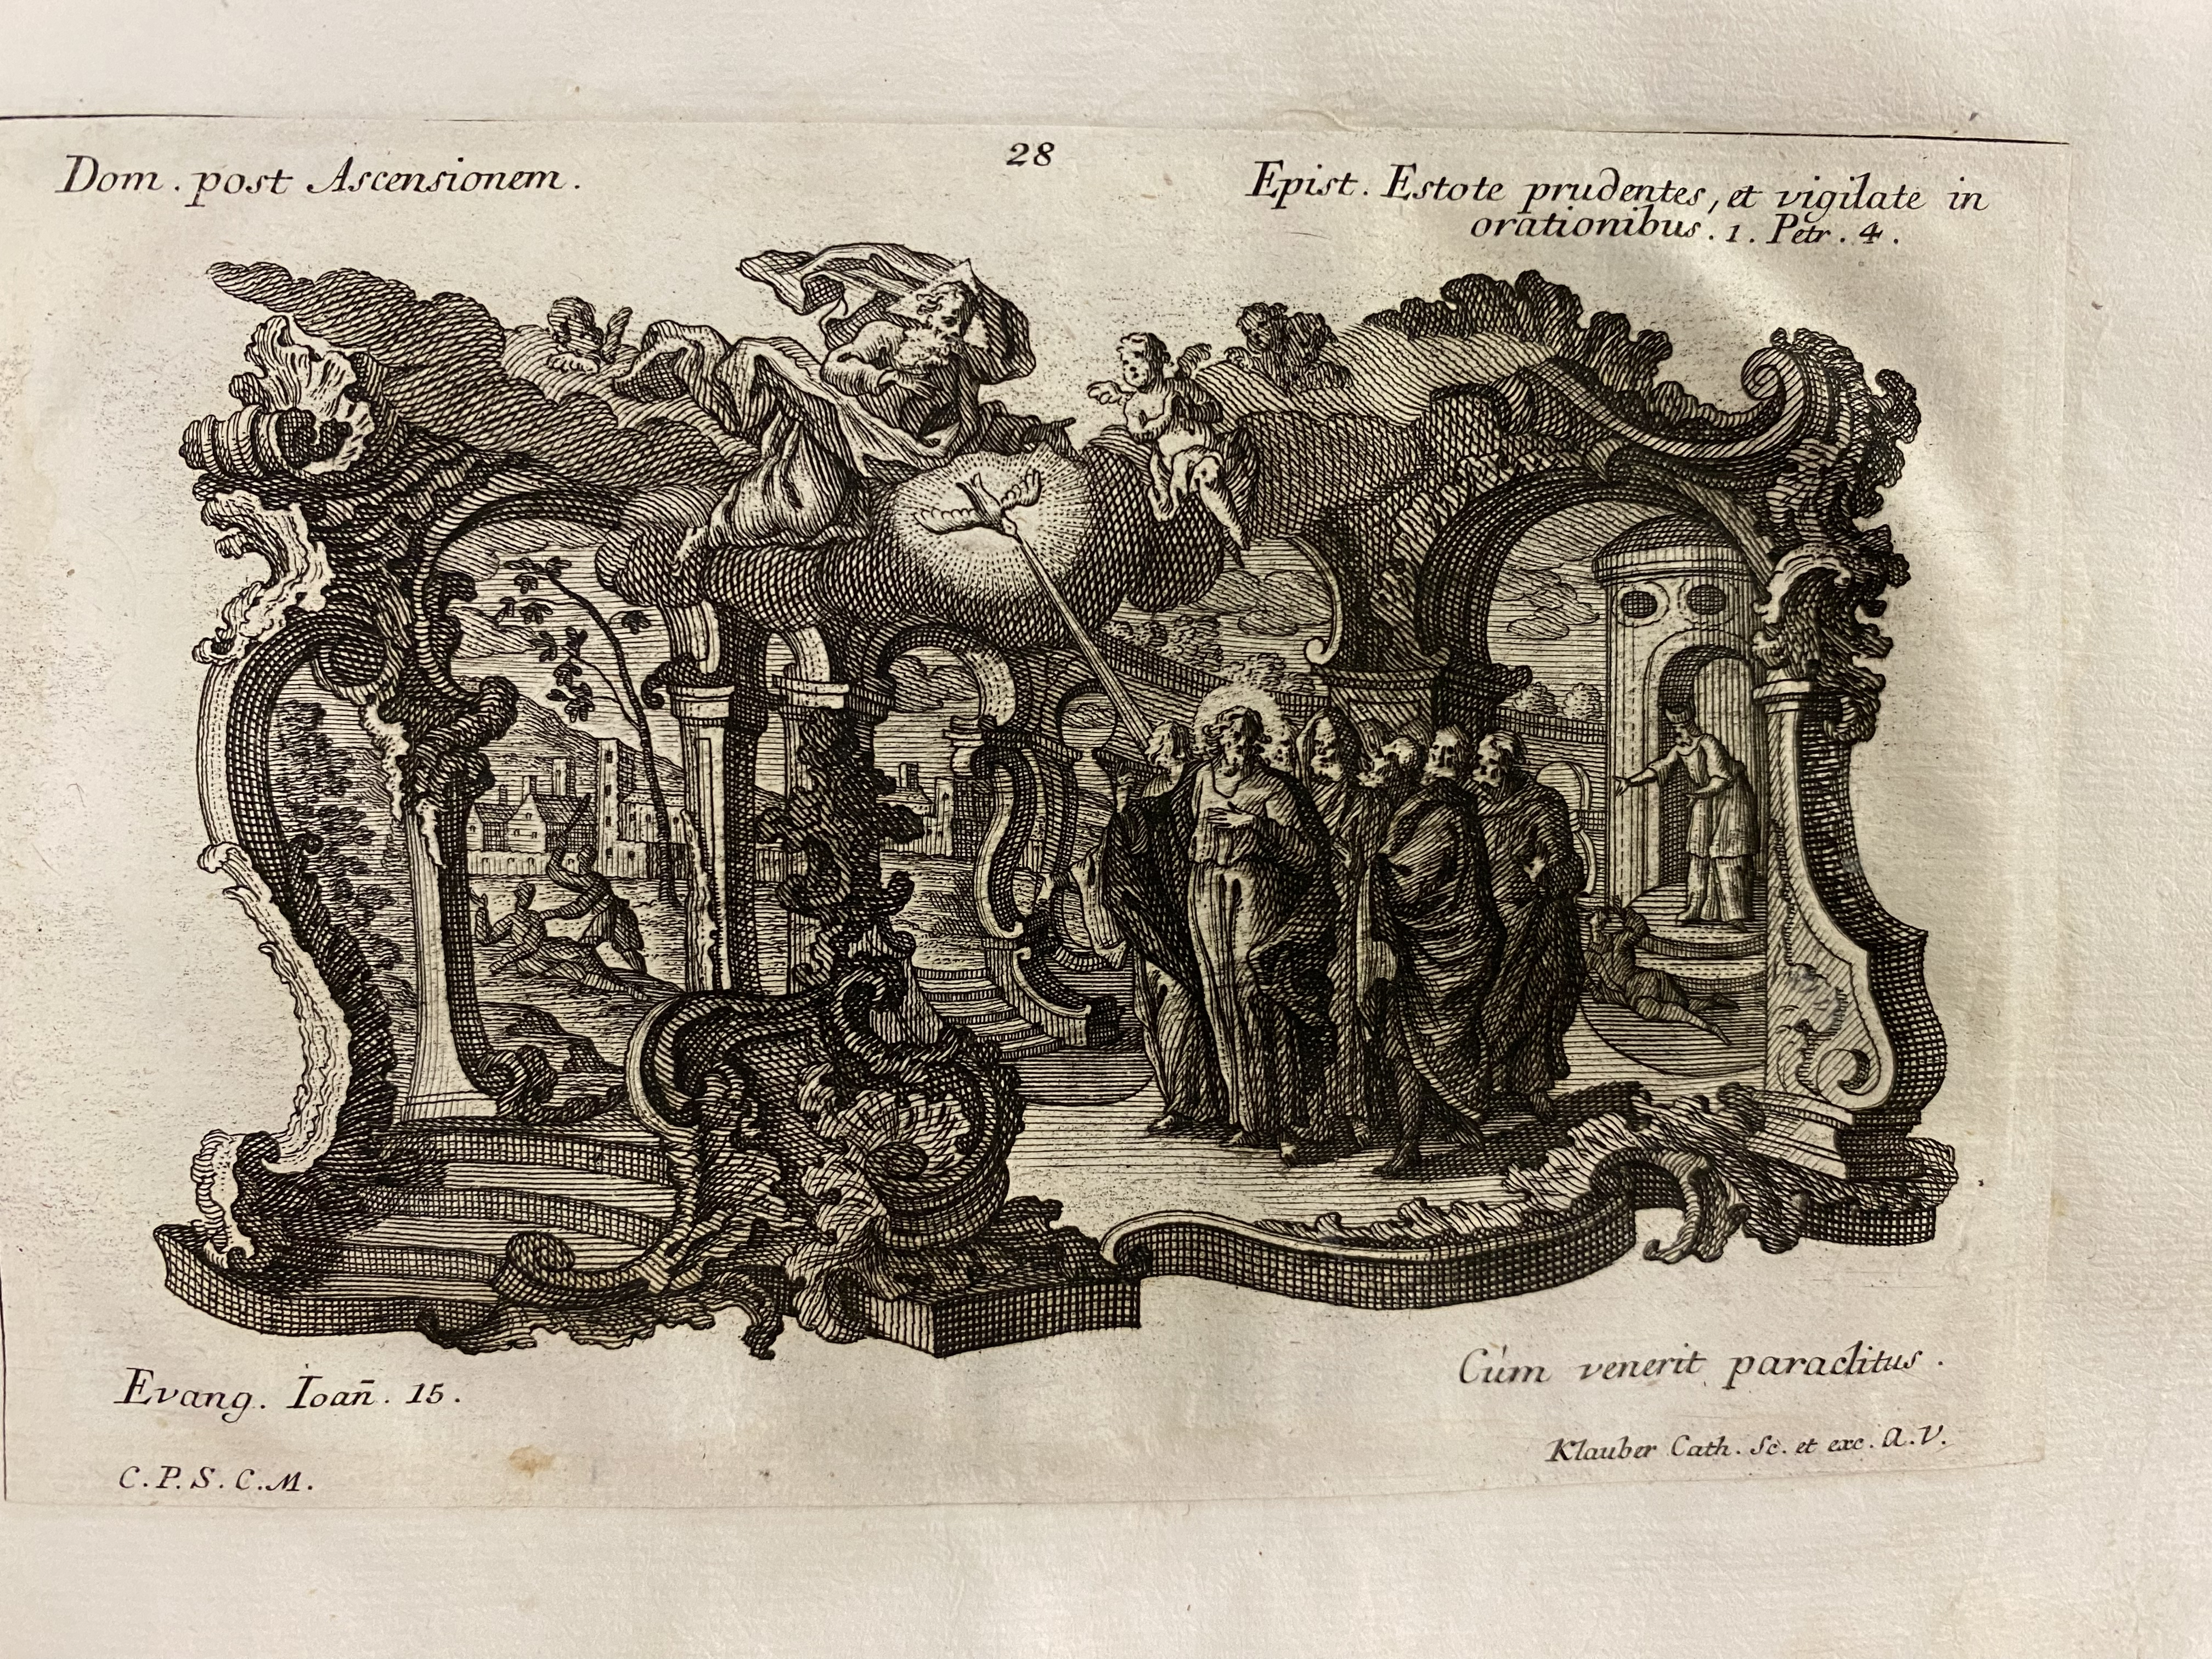 Dom. post Ascensionem.
28
Epist. Estote prudentes, et vigilate in
orationibus. 1. Petr. 4.
Evang. Ioan̄. 15.
Cùm venerit paraclitus.
Klauber Cath. Sc. et exc. A.V.
C.P.S.C.M.